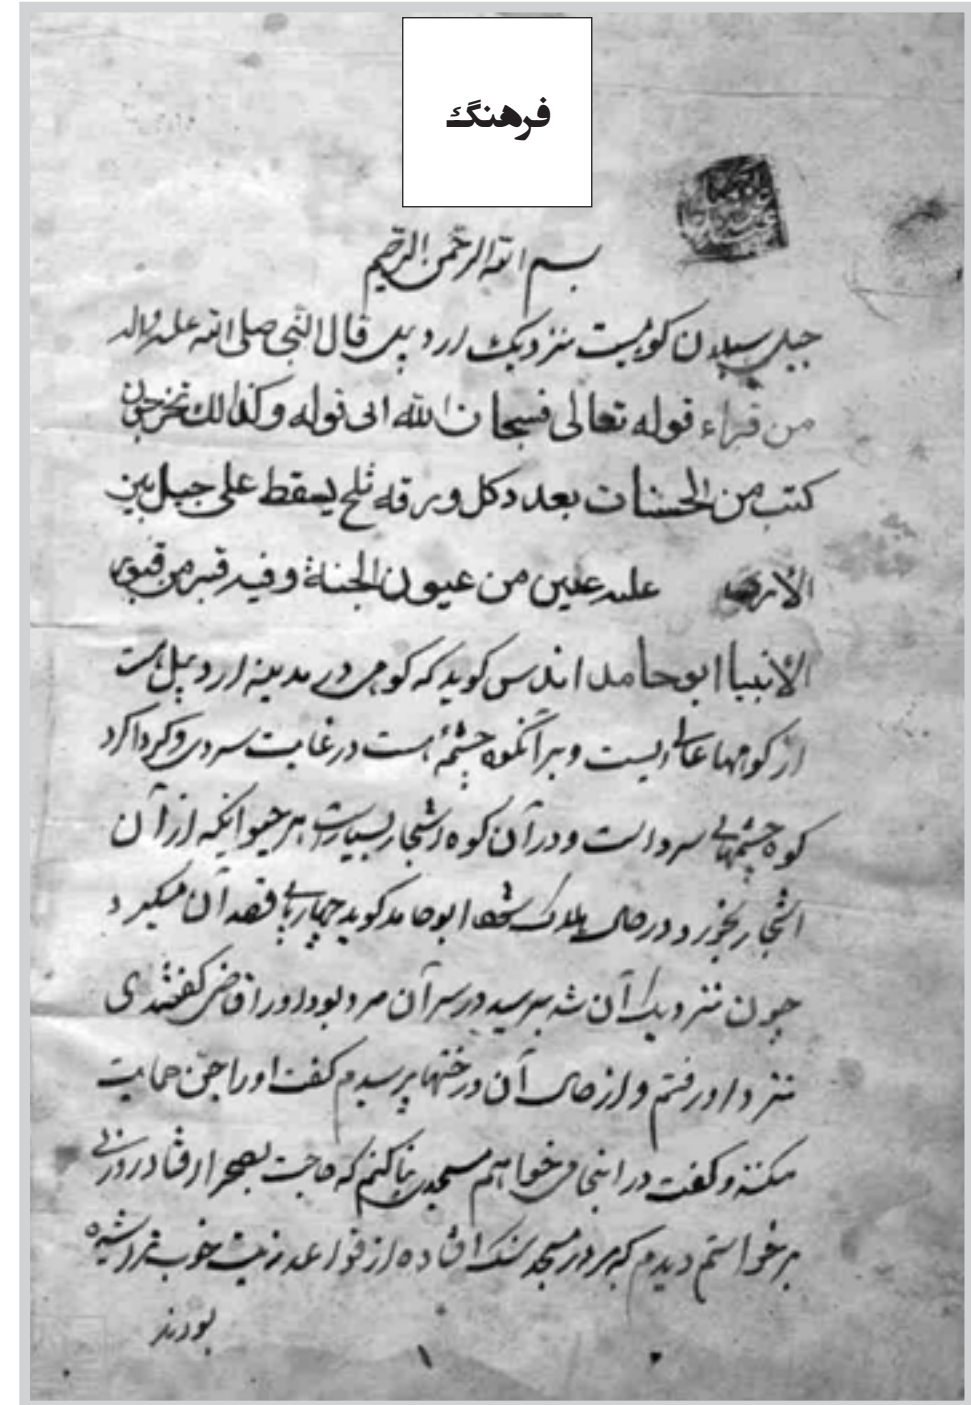 فرهنگ
بسم الله الرحمن الرحیم
جبل سبلان کوهیست نزدیک اردبیل قال النبی صلی الله علیه واله
من قراء قوله تعالی فسبحان الله الی قوله و کذالک تخرجون
کتب من الحسنات بعدد کل ورقه ثلج یسقط علی جبل بین
علیه عین من عیون الجنة و فیه قبر من قبور
الأنبیا ابو حامد اندلسی کوید که کوهی در مدینه اردبیل است
از کوهها عالیست و بر آنکوه چشمهٔ است در غایت سردی و کرداکرد
کوه چشمهایی سرد است و در آن کوه اشجار بسیار است هر حیوانیکه از آن
اشجار بخورد در حال هلاک ابو حامد کوید چهارپایی قصد آن میکرد
چون نزدیک آن شد در سر آن مرد بود او را قاضی کفتندی
نزد او رفتم و از حال آن درختها پرسیدم کفت او را جن حمایت
میکنند و کفت در اینجا می‌خواهم مسجدی بنا کنم که حاجت بصحرا افتاد روزی
برخواستم دیدم که بر در مسجد سنک افتاده از قواعد خوب تراشیده
بودند
۱